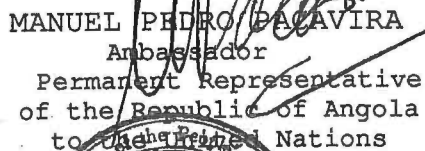 MANUEL PEDRO PACAVIRA
Ambassador
Permanent Representative
of the Republic of Angola
to the United Nations